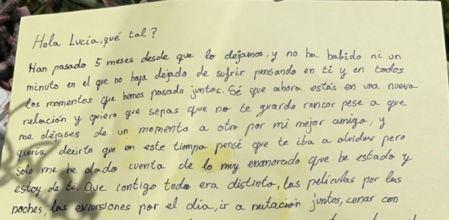 Hola Lucía, ¿qué tal?
Han pasado 5 meses desde que lo dejamos, y no ha habido ni un
minuto en el que no haya dejado de sufrir pensando en ti y en todos
los momentos que hemos pasado juntos. Sé que ahora estás en una nueva
relación y quiero que sepas que no te guardo rencor pese a que
me dejases de un momento a otro por mi mejor amigo, y
quería decirte que en este tiempo pensé que te iba a olvidar pero
solo me he dado cuenta de lo muy enamorado que he estado y
estoy de ti. Que contigo todo era distinto, las películas por las
noches, las excursiones por el día, ir a natación juntos, cenar con